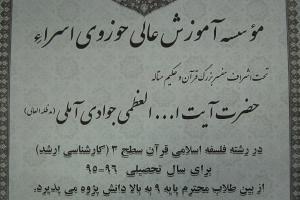 مؤسسه آموزش عالی حوزوی اسراء
تحت اشراف مفسر بزرگ قرآن و حکیم متاله
حضرت آیت ا... العظمی جوادی آملی (مدظله العالی)
در رشته فلسفه اسلامی قرآن سطح ۳ (کارشناسی ارشد)
برای سال تحصیلی ۹۶-۹۵
از بین طلاب محترم پایه ۹ به بالا دانش پژوه می پذیرد.